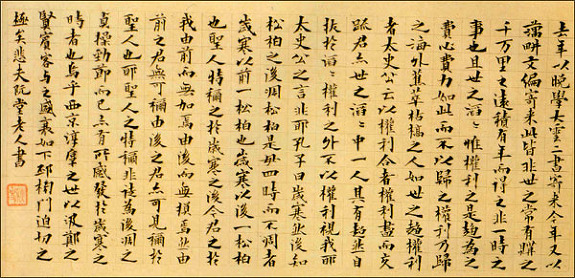 去年以晚學大雲二書寄來今年又以
藕畊文編寄來此皆非世之常有購之
千万里之遠積有年而得之非一時之
事也且世之滔〻惟權利之是趨爲之
費心費力如此而不以歸之權利乃歸
之海外蕉萃枯槁之人如世之趨權利
者太史公云以權利合者權利盡而交
踈君亦世之滔〻中一人其有超然自
拔於滔〻權利之外不以權利視我耶
太史公之言非耶孔子曰歲寒然後知
松柏之後凋松柏是毌四時而不凋者
歲寒以前一松柏也歲寒以後一松柏
也聖人特稱之於歲寒之後今君之於
我由前而無加焉由後而無損焉然由
前之君無可稱由後之君亦可見稱於
聖人也耶聖人之特稱非徒爲後凋之
貞操勁節而已亦有所感發於歲寒之
時者也烏乎西京淳厚之世以汲鄭之
賢賓客与之盛衰如下邳榜門迫切之
極矣悲夫阮堂老人書